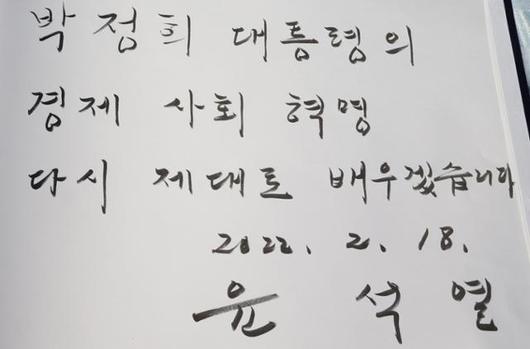 박정희 대통령의
경제 사회 혁명
다시 제대로 배우겠습니다
2022. 2. 18.
윤 석 열